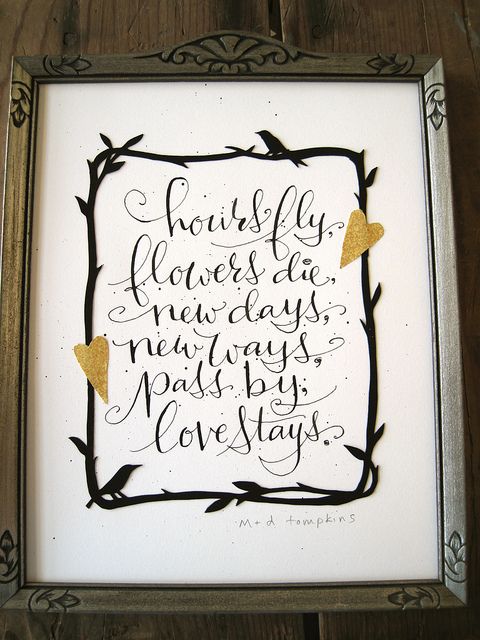 hours fly,
flowers die,
new days,
new ways,
pass by;
love stays.
m+d tompkins